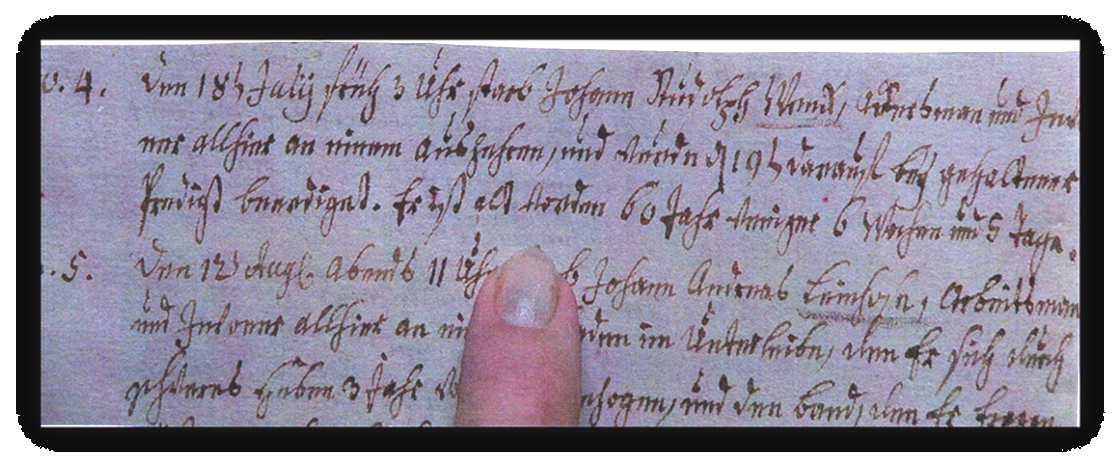 o. 4. den 18t July früh 3 Uhr starb Johann Rudolph Wend, Arbeitsman und Inw
ner allhier an einem Auszehren, und wurde d 19t darauf bey gehaltener
Predigt beerdiget. Er ist alt worden 60 Jahr weniger 6 Wochen und 5 Tage.
. 5. den 12t Aug. Abends 11 Uhr b Johann Andreas Leinhosn, Arbeitsman
und Inwoner allhier an ei den im Unterleibe, den Er sich durch
schweres Heben 3 Jahr v zogen, und den band, den Er